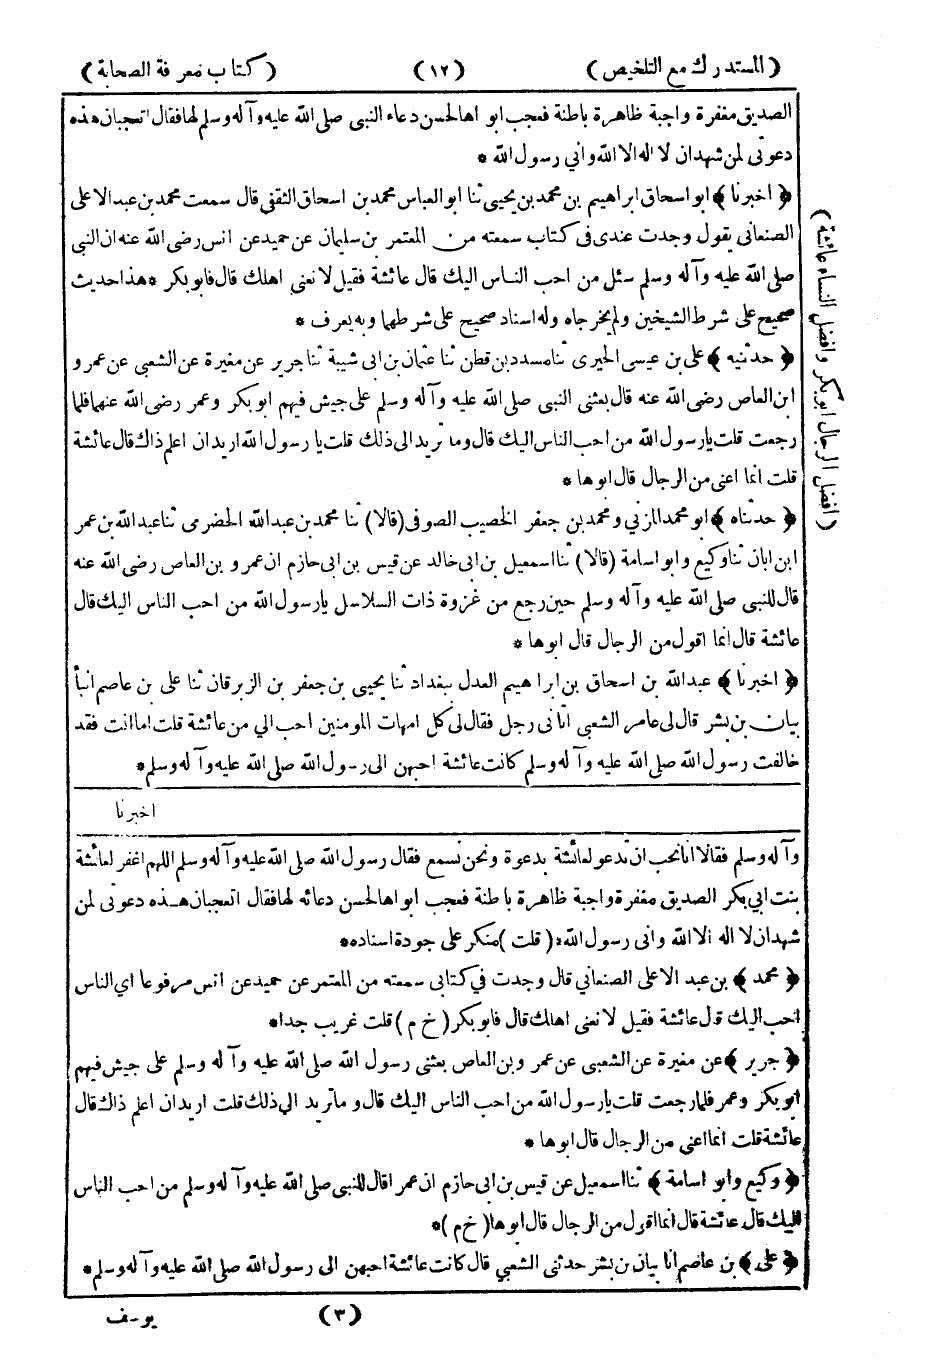 (المستدرك مع التلخيص) (١٢) (كتاب معرفة الصحابة)
الصديق مغفرة واجبة ظاهرة باطنة فعجب ابو اها لحسن دعاء النبى صلى الله عليه وآله وسلم لها فقال اتعجبان هذه
دعوتى لمن شهد ان لا اله الا الله واني رسول الله *
﴿اخبرنا﴾ ابو اسحاق ابراهيم بن محمد بن يحيى ثنا ابو العباس محمد بن اسحاق الثقفي قال سمعت محمد بن عبد الاعلى
الصنعانى يقول وجدت عندى فى كتاب سمعته من المعتمر بن سليمان عن حميد عن انس رضى الله عنه ان النبى
صلى الله عليه وآله وسلم سئل من احب الناس اليك قال عائشة فقيل لا نعنى اهلك قال فابو بكر * هذا حديث
صحيح على شرط الشيخين ولم يخرجاه وله اسناد صحيح على شرطهما وبه يعرف *
﴿حدثنيه﴾ على بن عيسى الحيرى ثنا مسدد بن قطن ثنا عثمان بن ابى شيبة ثنا جرير عن مغيرة عن الشعبى عن عمرو
ابن العاص رضى الله عنه قال بعثنى النبى صلى الله عليه وآله وسلم على جيش فيهم ابو بكر وعمر رضى الله عنهما فلما
رجعت قلت يا رسول الله من احب الناس اليك قال وما تريد الى ذلك قلت يا رسول الله اريد ان اعلم ذاك قال عائشة
قلت انما اعنى من الرجال قال ابوها *
﴿حدثناه﴾ ابو محمد المزني ومحمد بن جعفر الخصيب الصوفى (قالا) ثنا محمد بن عبد الله الحضرمى ثنا عبد الله بن عمر
ابن ابان ثنا وكيع وابو اسامة (قالا) ثنا اسمعيل بن ابى خالد عن قيس بن ابى حازم ان عمرو بن العاص رضى الله عنه
قال للنبى صلى الله عليه وآله وسلم حين رجع من غزوة ذات السلاسل يا رسول الله من احب الناس اليك قال
عائشة قال انما اقول من الرجال قال ابوها *
﴿اخبرنا﴾ عبد الله بن اسحاق بن ابراهيم العدل ببغداد ثنا يحيى بن جعفر بن الزبرقان ثنا على بن عاصم انبأ
بيان بن بشر قال لى عامر الشعبى اتانى رجل فقال لى كل امهات المومنين احب الي من عائشة قلت اما انت فقد
خالفت رسول الله صلى الله عليه وآله وسلم كانت عائشة احبهن الى رسول الله صلى الله عليه وآله وسلم *
اخبرنا
(افضل الرجال ابو بكر وافضل النساء عائشة)
وآله وسلم فقالا انا نحب ان تدعو لعائشة بدعوة ونحن نسمع فقال رسول الله صلى الله عليه وآله وسلم اللهم اغفر لعائشة
بنت ابي بكر الصديق مغفرة واجبة ظاهرة باطنة فعجب ابواها لحسن دعائه لها فقال اتعجبان هذه دعوتى لمن
شهد ان لا اله الا الله وانى رسول الله * (قلت) منكر على جودة اسناده *
﴿محمد﴾ بن عبد الاعلى الصنعاني قال وجدت في كتابى سمعته من المعتمر عن حميد عن انس مرفوعا اي الناس
احب اليك قال عائشة فقيل لا نعنى اهلك قال فابو بكر (خ م) قلت غريب جدا *
﴿جرير﴾ عن مغيرة عن الشعبى عن عمرو بن العاص بعثنى رسول الله صلى الله عليه وآله وسلم على جيش فيهم
ابو بكر وعمر فلما رجعت قلت يا رسول الله من احب الناس اليك قال وما تريد الى ذلك قلت اريد ان اعلم ذاك قال
عائشة قلت انما اعنى من الرجال قال ابوها *
﴿وكيع وابو اسامة﴾ ثنا اسمعيل عن قيس بن ابى حازم ان عمرا قال للنبى صلى الله عليه وآله وسلم من احب الناس
اليك قال عائشة قال انما اقول من الرجال قال ابوها (خ م) *
﴿على﴾ بن عاصم انا بيان بن بشر حدثنى الشعبي قال كانت عائشة احبهن الى رسول الله صلى الله عليه وآله وسلم *
(٣) يوسف